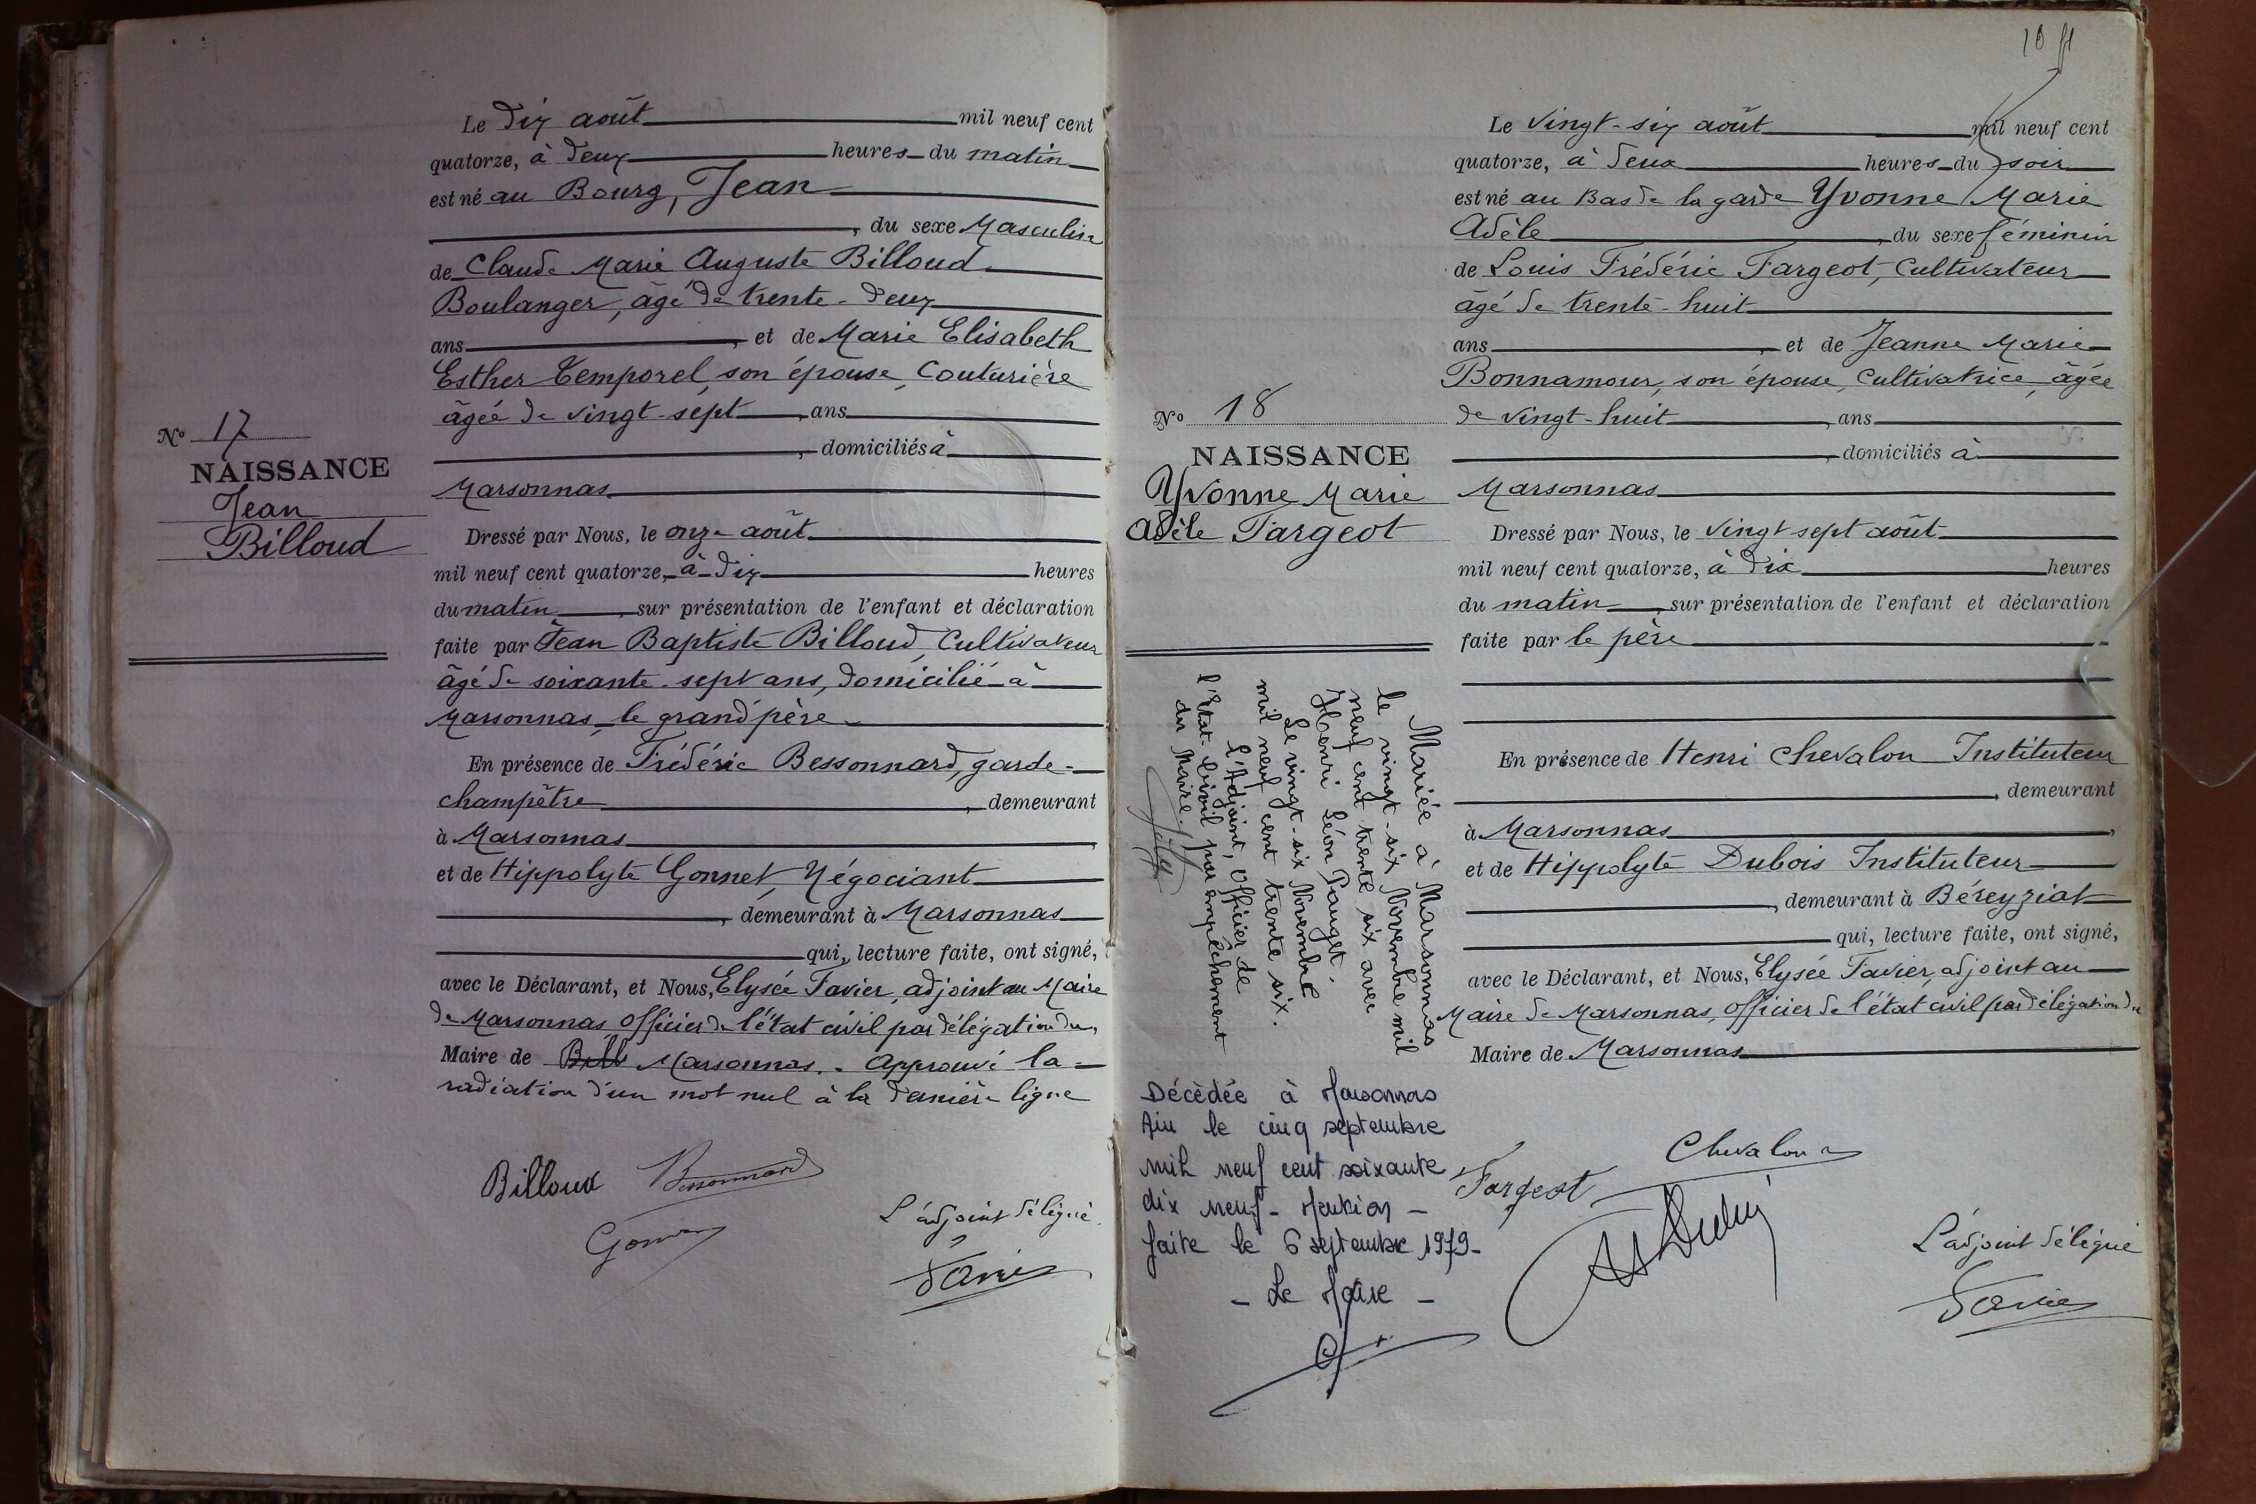 Le dix août mil neuf cent
quatorze, à deux heures du matin
est né au Bourg, Jean
, du sexe Masculin
de Claude Marie Auguste Billoud
Boulanger, âgé de trente-deux
ans, et de Marie Elisabeth
Esther Temporel, son épouse, Couturière
âgée de vingt-sept, ans
, domiciliés à
Marsonnas
Nº 17
NAISSANCE
Jean
Billoud
Dressé par Nous, le onze août
mil neuf cent quatorze, à dix heures
du matin, sur présentation de l'enfant et déclaration
faite par Jean Baptiste Billoud, Cultivateur
âgé de soixante-sept ans, domicilié à
Marsonnas, le grand père
En présence de Frédéric Bessonnard, garde-
champêtre, demeurant
à Marsonnas
et de Hippolyte Gonnet, Négociant
, demeurant à Marsonnas
qui, lecture faite, ont signé,
avec le Déclarant, et Nous, Elysée Favier, adjoint au Maire
de Marsonnas, officier de l'état civil par délégation du
Maire de Bill Marsonnas. - Approuvé la
radiation d'un mot nul à la dernière ligne
Billoud Bessonnard
Gonnet
L'adjoint délégué
Favier
10
Le vingt-six août mil neuf cent
quatorze, à deux heures du soir
est né au Bas de la garde Yvonne Marie
Adèle, du sexe féminin
de Louis Frédéric Fargeot, Cultivateur
âgé de trente-huit
ans, et de Jeanne Marie
Bonnamour, son épouse, Cultivatrice, âgée
de vingt-huit, ans
, domiciliés à
Marsonnas
Nº 18
NAISSANCE
Yvonne Marie
Adèle Fargeot
Dressé par Nous, le vingt sept août
mil neuf cent quatorze, à dix heures
du matin, sur présentation de l'enfant et déclaration
faite par le père
En présence de Henri Chevalon Instituteur
, demeurant
à Marsonnas,
et de Hippolyte Dubois Instituteur
, demeurant à Béreyziat
qui, lecture faite, ont signé,
avec le Déclarant, et Nous, Elysée Favier, adjoint au
Maire de Marsonnas, officier de l'état civil par délégation du
Maire de Marsonnas
Mariée à Marsonnas
le vingt-six Novembre mil
neuf cent trente six avec
Henri Léon Pauget.
Le vingt-six Novembre
mil neuf cent trente six.
L'Adjoint, Officier de
l'Etat-Civil par empêchement
du Maire.
Décédée à Marsonnas
Ain le cinq septembre
mil neuf cent soixante
dix neuf - Mention -
faite le 6 septembre 1979 -
- Le Maire -
Fargeot
Chevalon
H Dubois
L'adjoint délégué
Favier